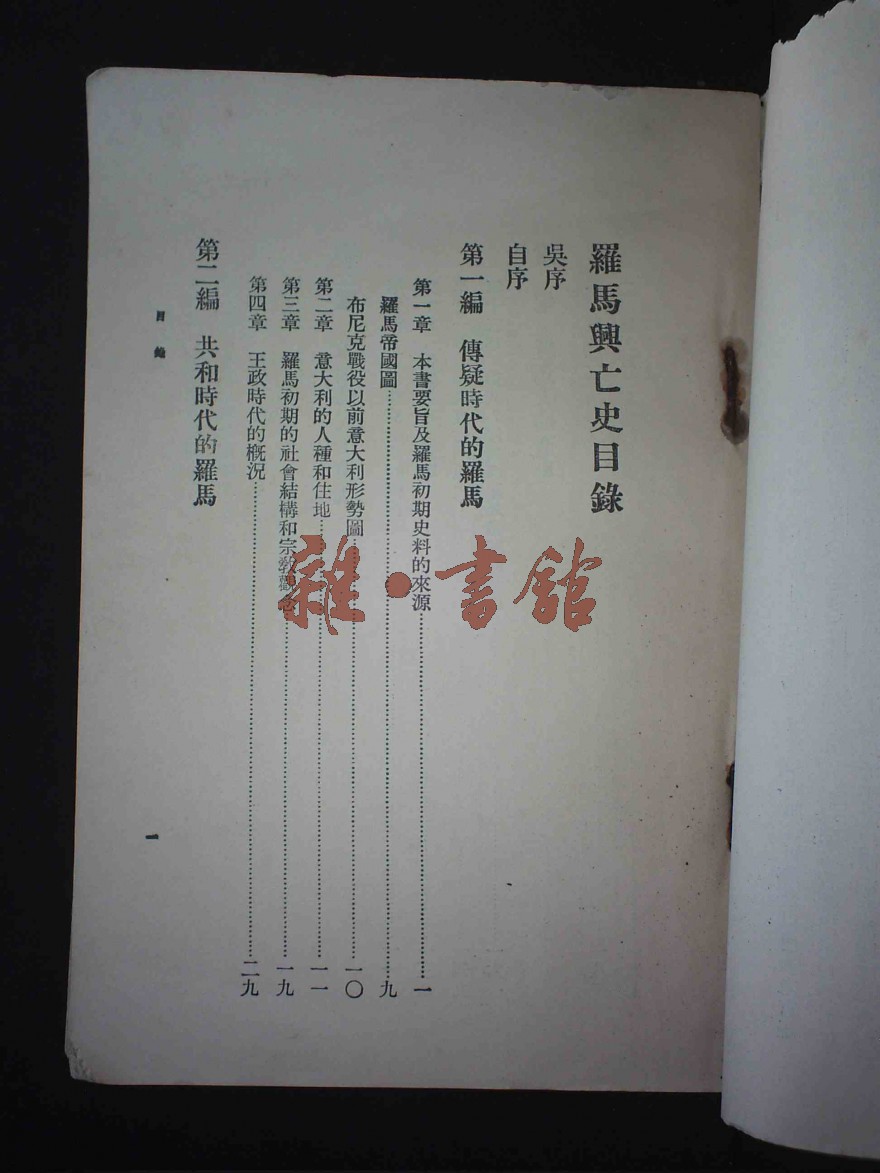 羅馬興亡史目錄
吳序
自序
第一編　傳疑時代的羅馬
第一章　本書要旨及羅馬初期史料的來源……一
羅馬帝國圖……九
布尼克戰役以前意大利形勢圖……一〇
第二章　意大利的人種和住地……一一
第三章　羅馬初期的社會結構和宗……一九
第四章　王政時代的概況……二九
第二編　共和時代的羅馬
目錄
一
雜·書館